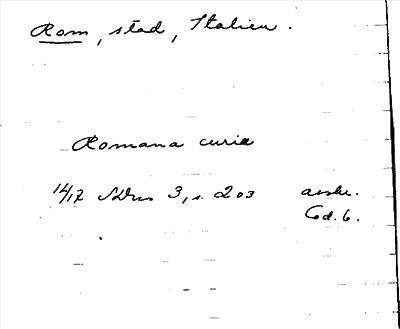 Rom, stad, Italien.
Romana curia
14/12 SDns 3, s. 203 avskr.
Cod. 6.